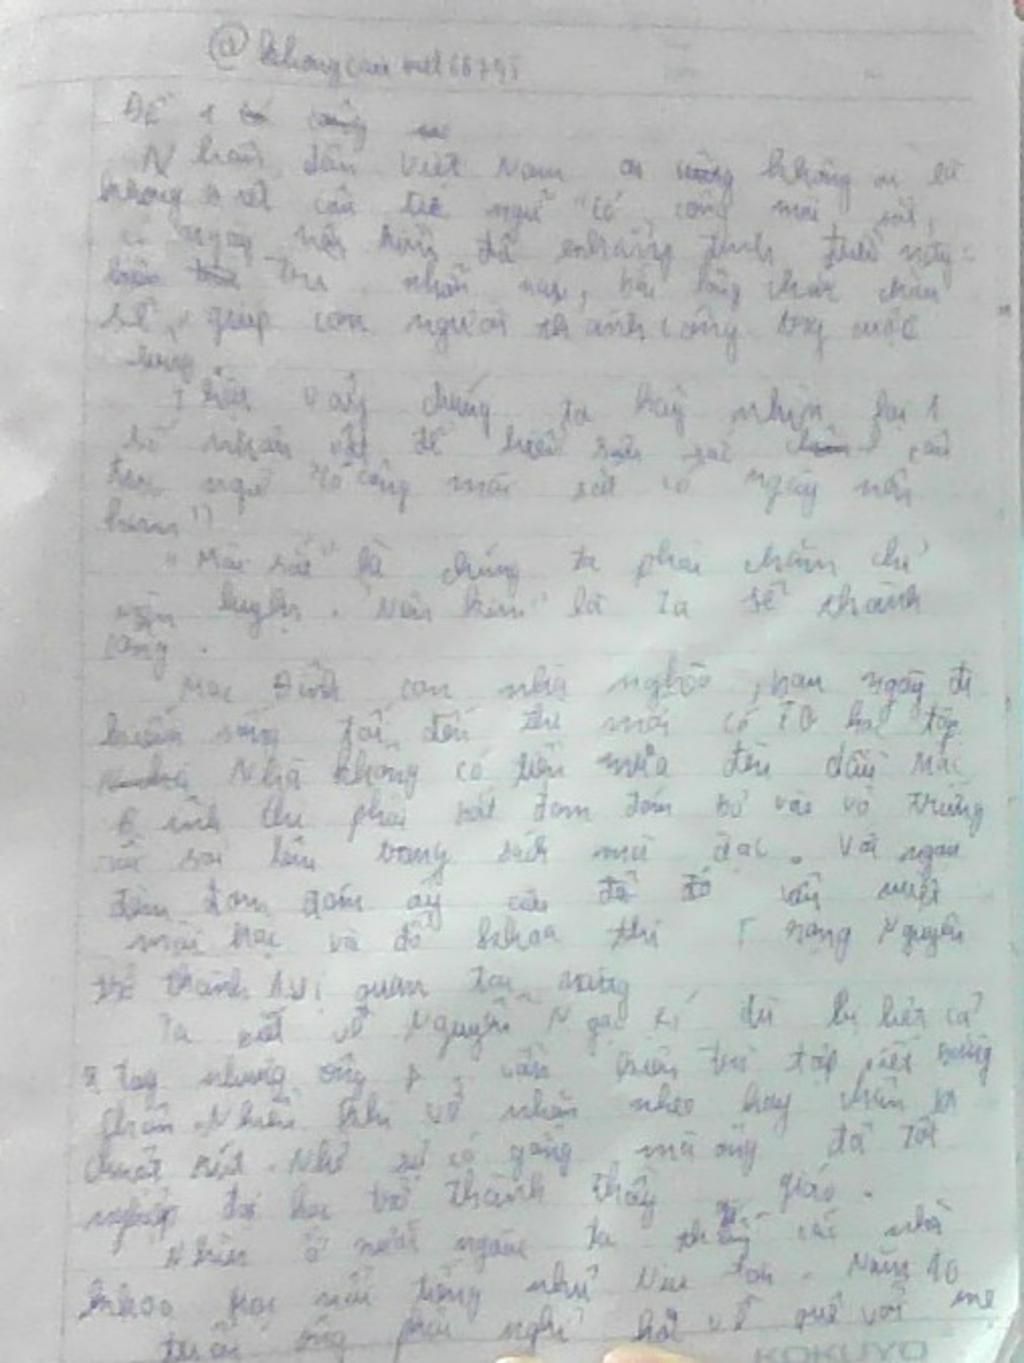 @ khongcanbiet66795
Đề 1
Nhân dân Việt Nam không ai là
không biết câu tục ngữ "Có công mài sắt,
có ngày nên kim" để
nhẫn nại, bền lòng
sẽ giúp con người thành công trg cuộc
sống
vậy chúng ta hãy nhìn lại 1
số nhân vật để hiểu sâu sắc câu
tục ngữ "Có công mài sắt có ngày nên
kim"
"Mài sắt" là chúng ta phải chăm chỉ
rèn luyện. "Nên kim" là ta sẽ thành
công.
Mạc Đĩnh con nhà nghèo, ban ngày đi
kiếm sống tối đến thì mới có học tập
Nhà không có tiền mua đèn dầu Mạc
Đĩnh thì phải bắt đom đóm bỏ vào vỏ trứng
rồi soi lên trang sách mà đọc. Với ngọn
đèn đom đóm ấy cậu đã đó vẫn miệt
mài học và đỗ khoa thi Trạng Nguyên
trở thành 1 vị quan tài năng
Ta biết về Nguyễn Ngọc Kí dù bị liệt cả
2 tay nhưng ông vẫn kiên trì tập viết bằng
chân. Nhiều khi vở nhàn nheo hay chân bị
chuột rút. Nhờ sự cố gắng mà ông đã tốt
nghiệp đại học trở thành thầy giáo.
Nhìn ở nước ngoài ta thấy các nhà
khoa học nổi tiếng như Niu tơn. Năm 10
tuổi ông phải nghỉ về quê với mẹ
KOKUYO